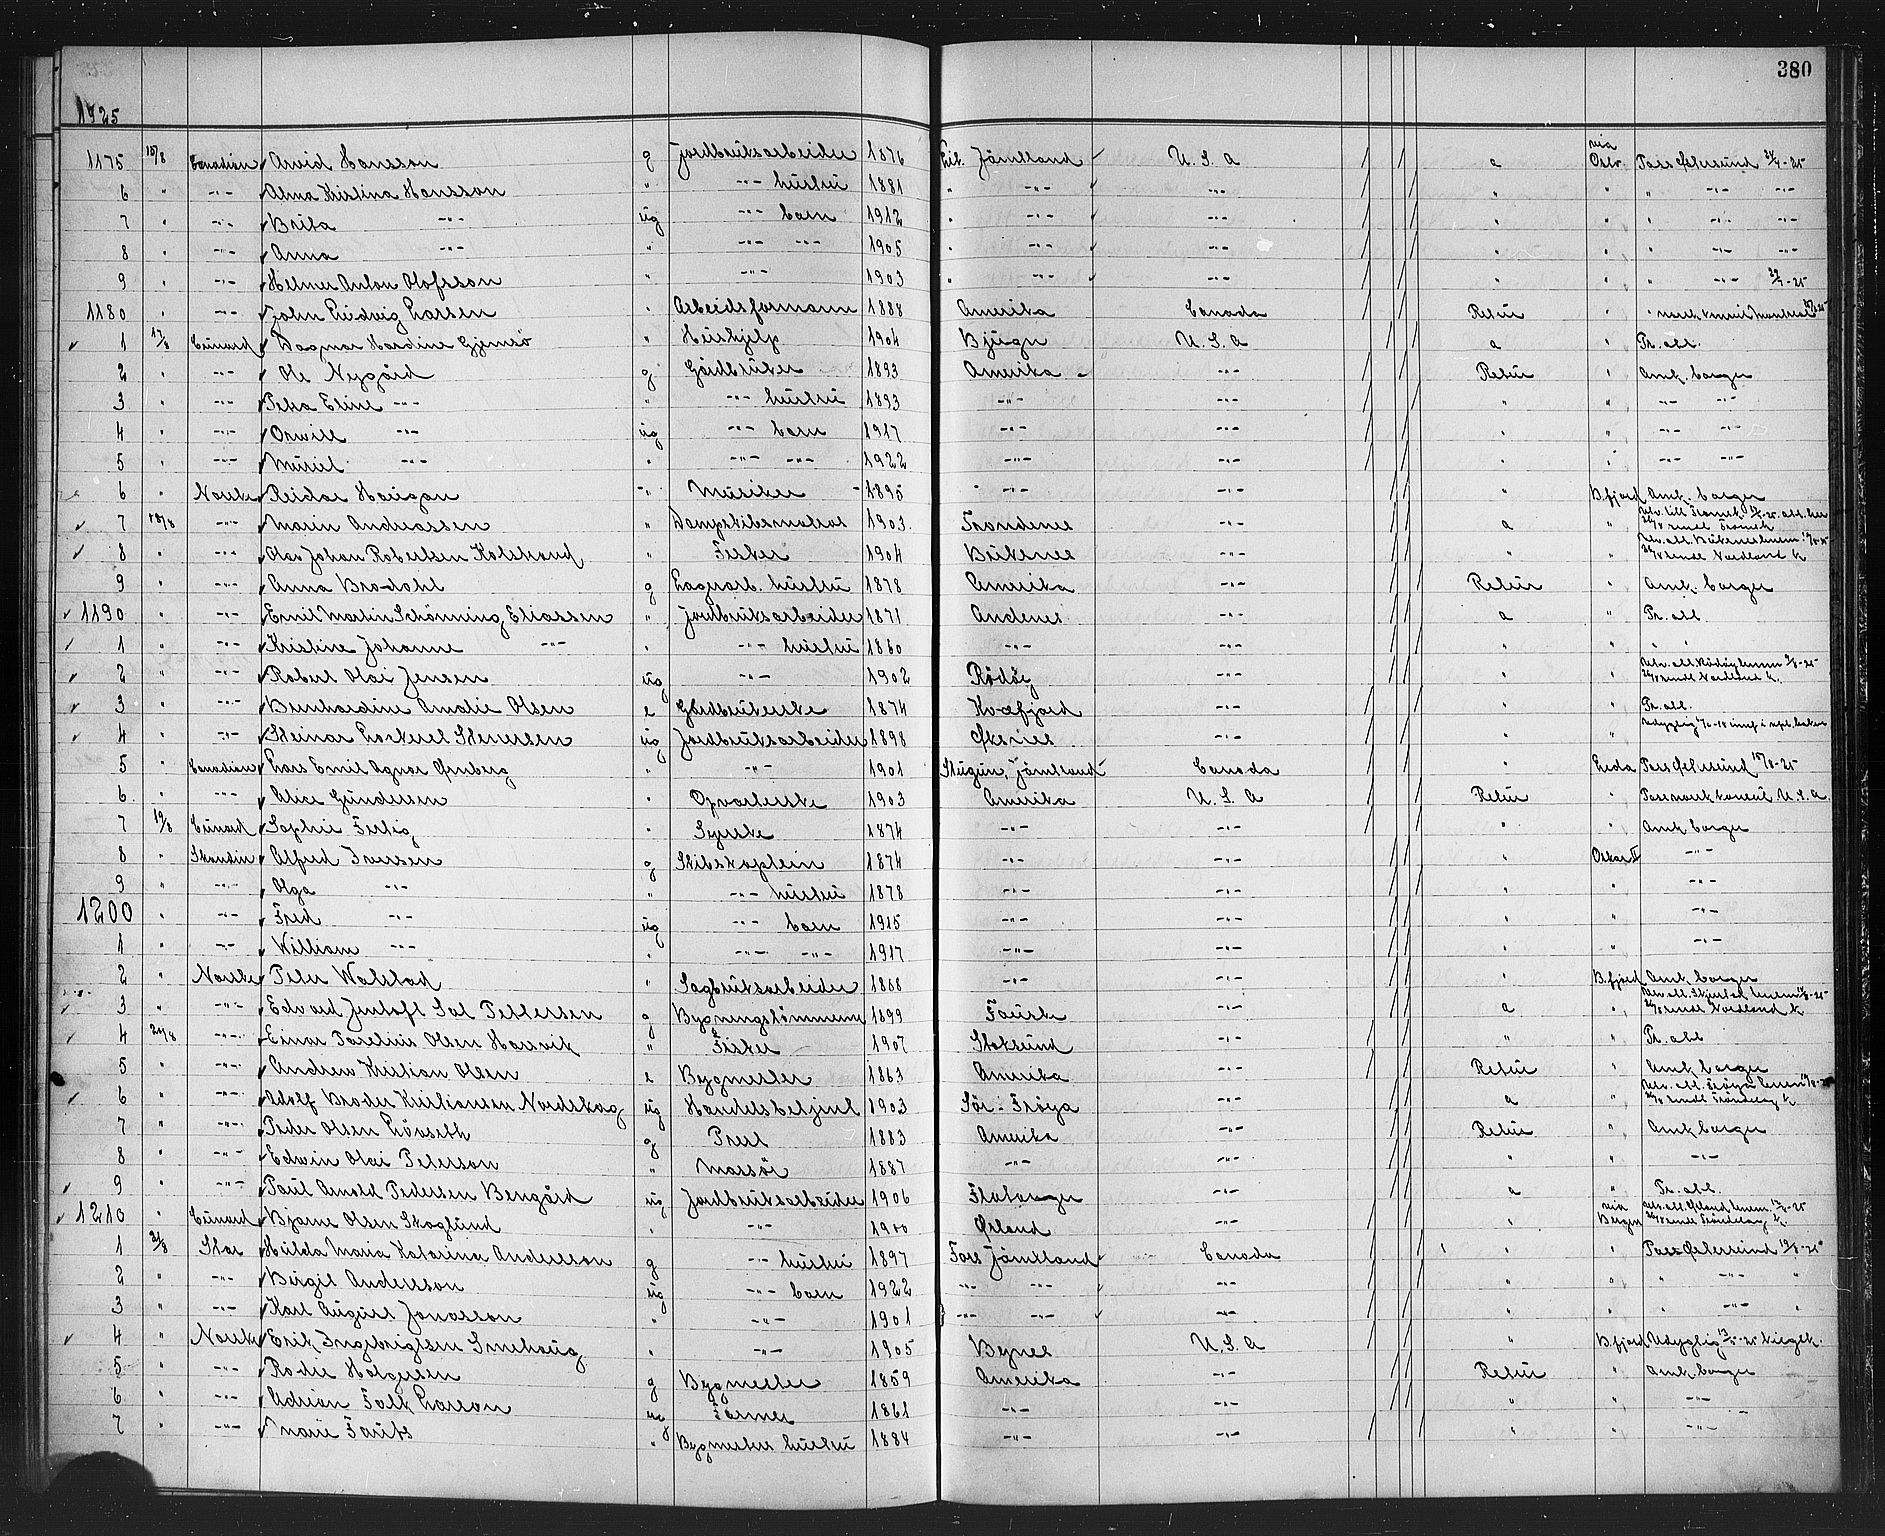 380
1925
1175 15/8 Canadian Arvid Hansson g Jordbruksarbeider 1876 Lit. Jämtland U.S.A a via Ostr. Pass Østersund 24/7-25
6 " -"- Alma Kristina Hansson " -"- hustru 1881 " -"- -"- " " " -"- -"-
7 " -"- Brita -"- ug -"- barn 1912 " -"- -"- " " " -"- -"-
8 " -"- Anna -"- " -"- -"- 1905 " -"- -"- " " " -"- -"-
9 " -"- Helmer Anton Olofsson " -"- 1903 " -"- -"- " " " -"- 29/7-25
1180 " -"- John Ludvig Larsen " Arbeidsformann 1888 Amerika Canada Retur " " norsk konsul Montreal
1 17/8 Cunard Dagmar Hardine Gjemsø " Hushjelp 1904 Bjugn U.S.A a " Pr. att.
2 " -"- Ole Nygård g Gårdbruker 1893 Amerika -"- Retur " Amk. borger
3 " -"- Petra Eline -"- " -"- hustru 1893 -"- -"- " " -"- -"-
4 " -"- Orwill -"- ug -"- barn 1917 -"- -"- " " -"- -"-
5 " -"- Muriel -"- " -"- -"- 1922 -"- -"- " " -"- -"-
6 " Norske Reidar Haugan -"- Musiker 1895 -"- -"- " B.fjord Amk. borger
7 18/8 -"- Marin Andreassen " Dampskibsmatros 1903 Trondenes -"- a "
8 " -"- Olav Johan Robertsen Kolstrand " Fisker 1904 Buksnes -"- " "
9 " -"- Anna Brodahl g Lagerarb. hustru 1878 Amerika -"- Retur " Amk. borger
1190 " -"- Emil Martin Schönning Eliassen " Jordbruksarbeider 1871 Andenes -"- a " Pr. att
1 " -"- Kristine Johanne -"- " -"- hustru 1860 -"- -"- " " "
2 " -"- Robert Olai Jensen ug -"- 1902 Rödöy -"- " "
3 " -"- Bernhardine Amalie Olsen e Gårdbrukerske 1874 Kvæfjord -"- " " Pr. att.
4 " -"- Steinar Lockerel Steversen ug Jordbruksarbeider 1898 Øksnes -"- "
5 " Canadian Lars Emil Agnar Ørnberg " -"- 1901 Stugun, Jämtland Canada " Leda Pass Østersund 15/8-25
6 " -"- Alice Gundersen " Opvarterske 1903 Amerika U.S.A Retur " Pass norsk konsul U.S.A.
7 19/8 Cunard Sophie Fertig " Syerske 1874 -"- -"- " " Amk borger
8 " Skandin Alfred Iversen g Skibskaptein 1874 -"- -"- " Oskar II -"-
9 " -"- Olga -"- " -"- hustru 1878 -"- -"- " " -"-
1200 " -"- Fred -"- ug -"- barn 1915 -"- -"- " " -"-
1 " -"- William -"- " -"- -"- 1917 -"- -"- " " -"-
2 " Norske Peter Walstad " Sagbruksarbeider 1868 -"- -"- " B.fjord Amk. borger
3 " -"- Edvard Jentoft Sal Pettersen g Bygningstömmerm 1899 Fauske -"- a "
4 20/8 -"- Einar Parelius Olsen Harsvik " Fisker 1907 Stoksund -"- " " Pr. att
5 " -"- Andrew Kristian Olsen e Bygmester 1863 Amerika -"- Retur " Amk borger
6 " -"- Adolf Broder Kristiansen Nordskag ug Handelsbetjent 1903 Sör-Fröya -"- a "
7 " -"- Peder Olsen Lövseth g Prest 1883 Amerika -"- Retur " Amk borger
8 " -"- Edwin Olai Peterson " Massör 1887 -"- -"- " " -"-
9 " -"- Paul Arnold Pedersen Bengård ug Jordbruksarbeider 1906 Flatanger -"- a " Pr. att.
1210 " Cunard Bjarne Olsen Skoglund " -"- 1900 Ørland -"- " via Bergen
1 21/8 Star Hulda Maria Katarina Andersson g -"- hustru 1897 Fors Jämtland Canada " " Pass Østersund 19/8-25
2 " -"- Birgit Andersson ug -"- barn 1922 -"- -"- -"- " " " -"- "
3 " -"- Karl August Jonasson " -"- 1901 -"- -"- -"- " " " -"- "
4 " Norske Erik Ingebrigtsen Snehaug " -"- 1905 Bynes U.S.A " B.fjord Udygtig
5 " -"- Rodie Holgersen g Bygmester 1859 Amerika -"- Retur " Amk borger
6 " -"- Adrian Falk Larson ug Farmer 1861 -"- -"- " " -"-
7 " -"- Marie Fauts " Bygmesters hustru 1884 -"- -"- " " -"-